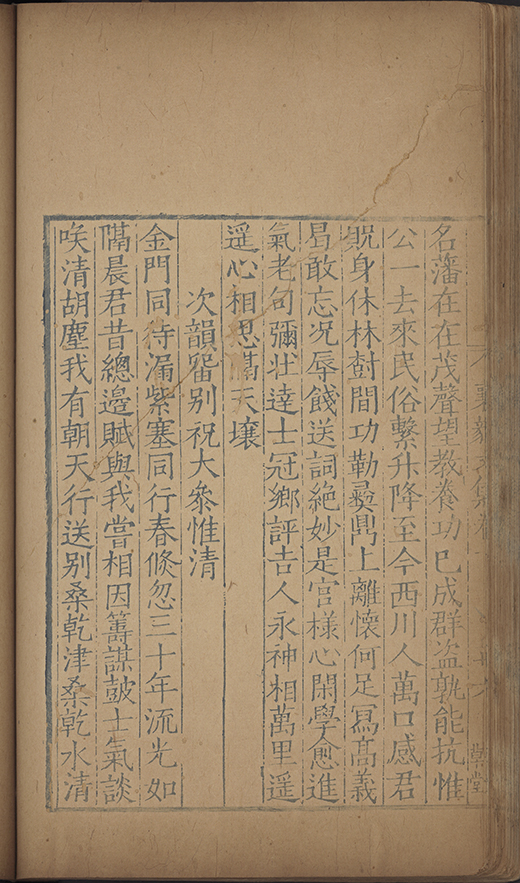 襄毅
名藩在在茂聲望教養功已成群盗孰能抗惟
公一去來民俗繫升降至今西川人萬口感君
貺身休林樹間功勒彞鼎上離懷何足冩高義
曷敢忘况辱餞送詞絶妙是官樣心閑學愈進
氣老句彌壯逹士冠鄉評吉人永神相萬里遥
遥心相思隔天壤
次韻畱别祝大叅惟清
金門同待漏紫塞同行春倐忽三十年流光如
隔晨君昔總邊賦與我嘗相因籌謀皷士氣談
咲清胡塵我有朝天行送别桑乾津桑乾水清